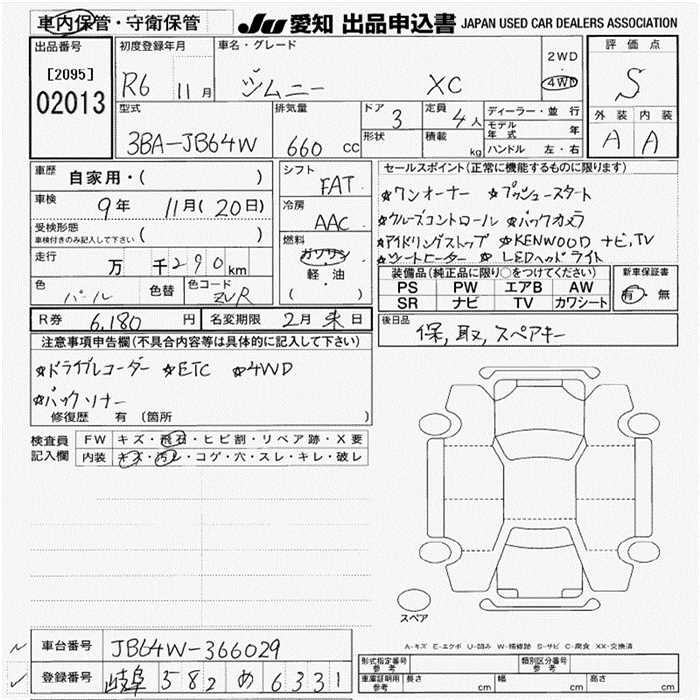 車内保管・守衛保管 JU 愛知 出品申込書 JAPAN USED CAR DEALERS ASSOCIATION
出品番号 初度登録年月 車名・グレード 2WD ・ 4WD 評価点
[2095] R6 11月 ジムニー XC S
02013
型式 排気量 ドア 3 定員 4人 ディーラー・並行 外装 内装
3BA-JB64W 660cc 形状 積載 kg モデル年式 年 A A
ハンドル 左・右
車歴 自家用・( ) シフト FAT セールスポイント(正常に機能するものに限ります)
車検 9年 11月(20日) 冷房 AAC ☆ワンオーナー ☆プッシュスタート
受検形態 車検付きのみ記入して下さい ( ) 燃料 ガソリン ☆クルーズコントロール ☆バックカメラ
走行 万 千290km 軽・油 ☆アイドリングストップ ☆KENWOOD ナビ,TV
☆シートヒーター ☆LEDヘッドライト
色 パール 色替 色コード ZVR ( ) 装備品(純正品に限り○をつけてください) 新車保証書
PS PW エアB AW 有・無
SR ナビ TV カワシート
R券 6,180円 名変期限 2月末日 後日品
保,取,スペアキー
注意事項申告欄(不具合内容等は具体的に記入して下さい)
☆ドライブレコーダー ☆ETC ☆4WD
☆バックソナー
修復歴 有 (箇所 )
検査員記入欄 FW キズ・飛石・ヒビ割・リペア跡・X要
内装 キズ・汚レ・コゲ・穴・スレ・キレ・破レ
スペア
A-キズ E-エクボ U-凹み W-補修跡 S-サビ C-腐食 XX-交換済
車台番号 JB64W-366029
型式指定番号 参考 類別区分番号 参考
登録番号 岐阜 582 め 6331
車庫証明用 参考 長さ cm 幅 cm 高さ cm